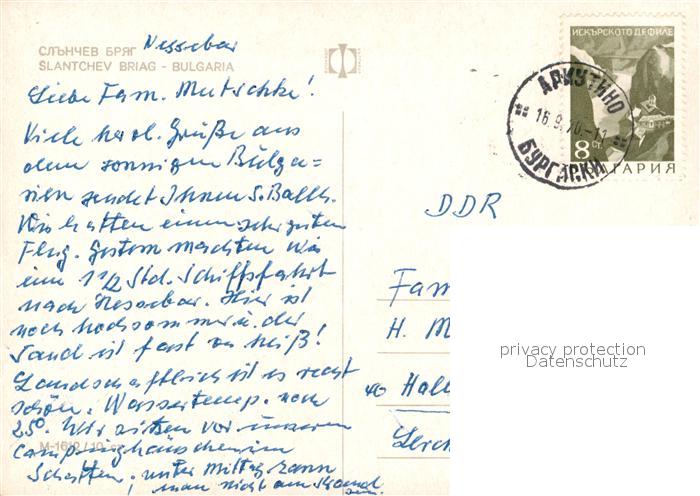 СЛЪНЧЕВ БРЯГ Nessebar
SLANTCHEV BRIAG - BULGARIA
Liebe Fam. Mutschke!
Viele herzl. Grüße aus
dem sonnigen Bulga=
rien sendet Ihnen S.
Wir hatten einen sehr guten
Flug. Gestern machten wir
eine 1 1/2 Std. Schiffsfahrt
nach Nessebar. Hier ist
noch Hochsommer u. der
Sand ist fast zu heiß!
Landschaftlich ist es recht
schön. Wassertemp. noch
25°. Wir sitzen vor unserem
Campinghäuschen im
Schatten, unter Mittag kann
man nicht am Strand
sein.
M-1612 / 10
ИСКЪРСКОТО ДЕФИЛЕ
8 СТ.
БЪЛГАРИЯ
АРКУТИНО
16.9.70-11
БУРГАСКИ
DDR
Fam
H. M
40 Hall
Lerc
privacy protection
Datenschutz